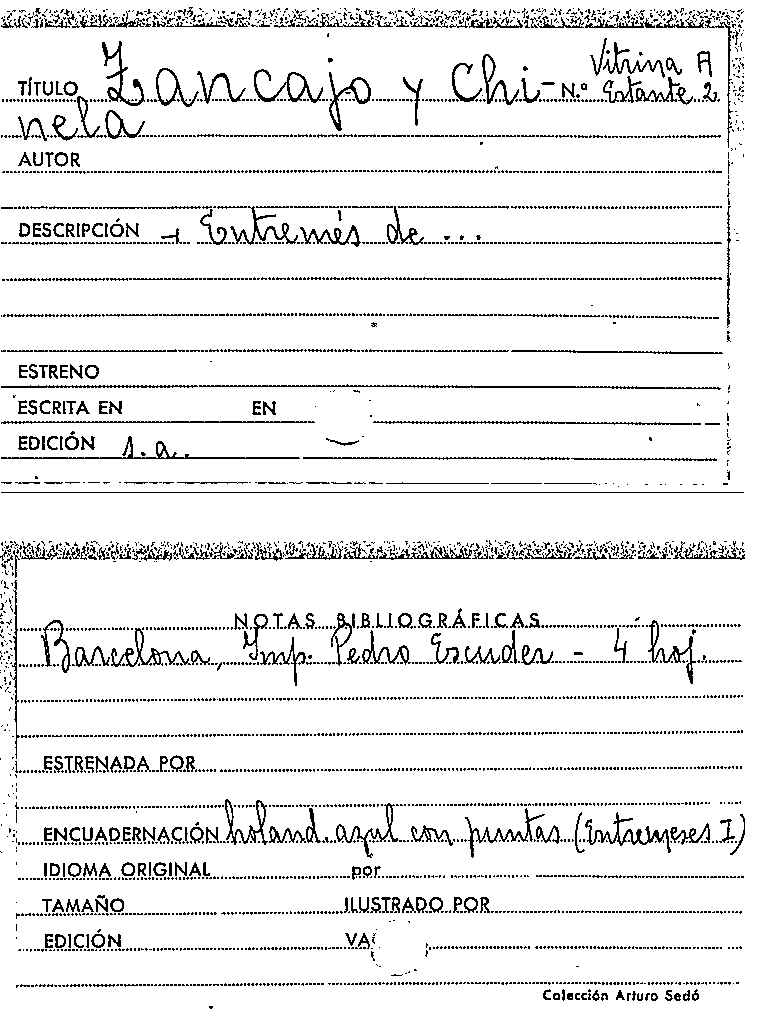 TÍTULO Zancajo y Chi- N.º Vitrina A
Estante 2
nela
AUTOR
DESCRIPCIÓN Entremés de ...
ESTRENO
ESCRITA EN EN
EDICIÓN s.a.
NOTAS BIBLIOGRÁFICAS
Barcelona, Imp. Pedro Escuder - 4 hoj.
ESTRENADA POR
ENCUADERNACIÓN holand. azul con puntas (Entremeses I)
IDIOMA ORIGINAL por
TAMAÑO ILUSTRADO POR
EDICIÓN VA
Colección Arturo Sedó